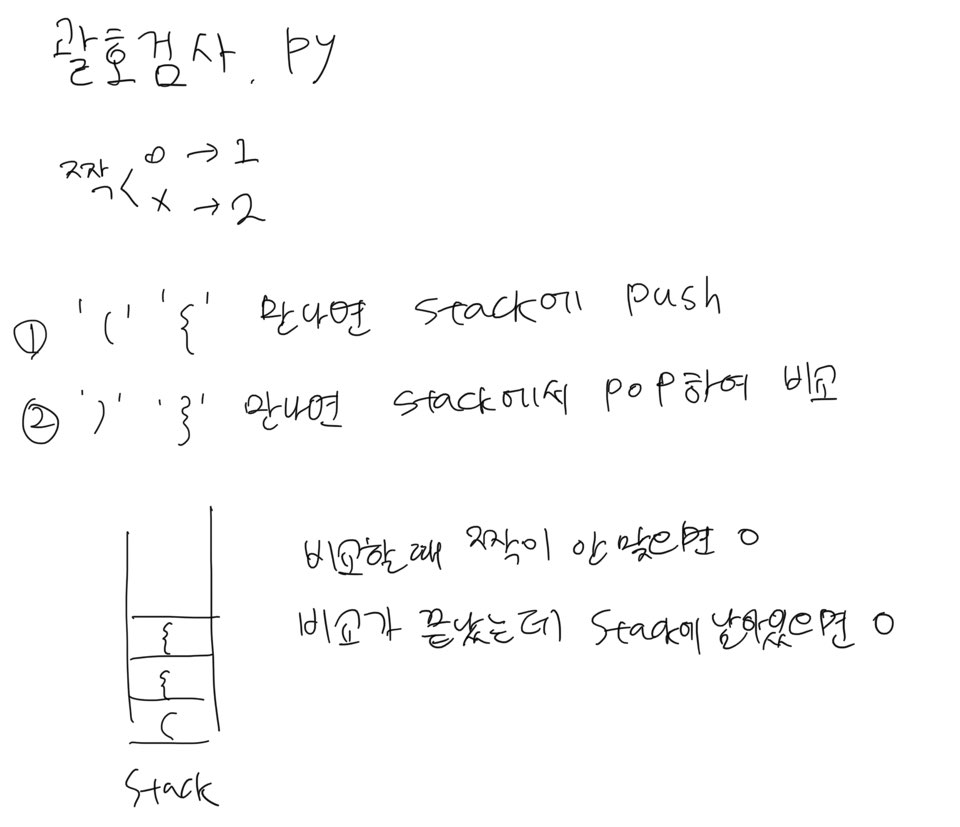 괄호검사.py
짝 < o → 1
x → 2
① '(' '{' 만나면 stack에 push
② ')' '}' 만나면 stack에서 pop하여 비교
비교할때 짝이 안 맞으면 0
비교가 끝났는데 Stack에 남아있으면 0
{
{
(
Stack